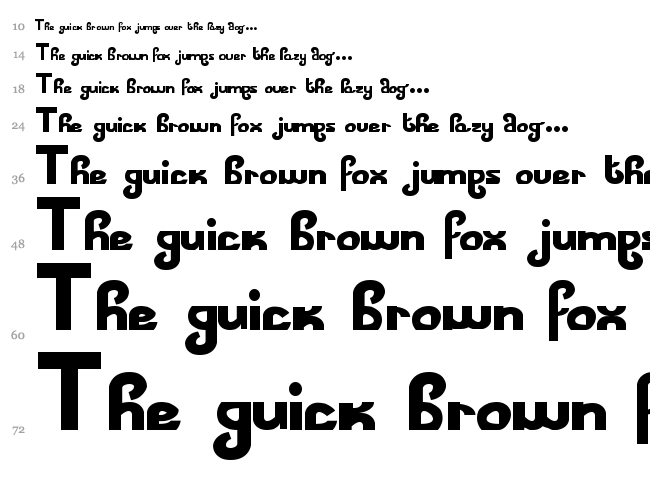 10 The quick brown fox jumps over the lazy dog...
14 The quick brown fox jumps over the lazy dog...
18 The quick brown fox jumps over the lazy dog...
24 The quick brown fox jumps over the lazy dog...
36 The quick brown fox jumps over the
48 The quick brown fox jumps
60 The quick brown fox
72 The quick brown f